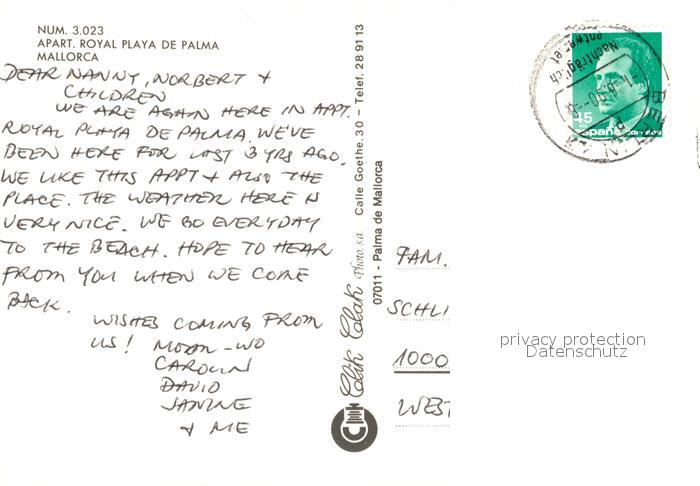 NUM. 3.023
APART. ROYAL PLAYA DE PALMA
MALLORCA
DEAR NANNY, NORBERT +
CHILDREN
WE ARE AGAIN HERE IN APPT.
ROYAL PLAYA DE PALMA. WE'VE
BEEN HERE FOR LAST 3 YRS AGO.
WE LIKE THIS APPT + ALSO THE
PLACE. THE WEATHER HERE IS
VERY NICE. WE GO EVERYDAY
TO THE BEACH. HOPE TO HEAR
FROM YOU WHEN WE COME
BACK.
WISHES COMING FROM
US!
CAROLIN
DAVID
JANINE
+ ME
Clik Clak Photo, s.a. Calle Goethe, 30 – Telef. 28 91 13
07011 - Palma de Mallorca
Nachträglich
entwertet
BERLIN
45
España
FAM.
SCHLI
1000
WEST
privacy protection
Datenschutz